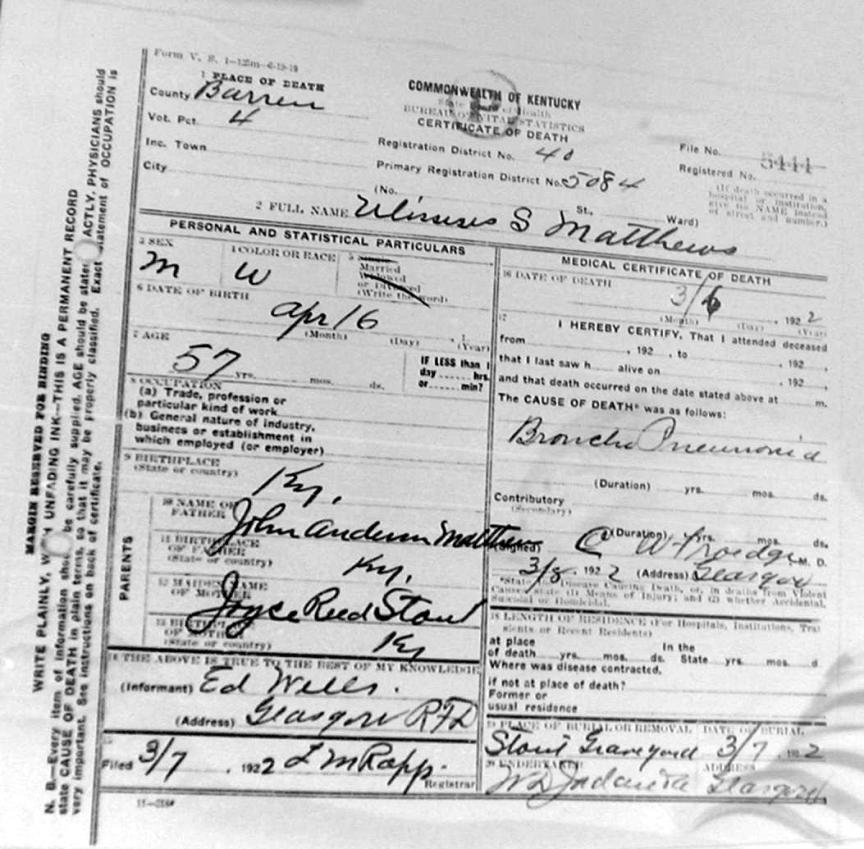 Form V. S. 1-125m-6-19-19
1 PLACE OF DEATH
County Barren
Vot. Pct. 4
Inc. Town
City
COMMONWEALTH OF KENTUCKY
State of Health
BUREAU OF VITAL STATISTICS
CERTIFICATE OF DEATH
Registration District No. 40
Primary Registration District No. 5084
File No.
Registered No. 5444
(If death occurred in a
hospital or institution,
give its NAME instead
of street and number.)
(No. St., Ward)
2 FULL NAME Ulisses S Matthews
PERSONAL AND STATISTICAL PARTICULARS
3 SEX
m
4 COLOR OR RACE
W
5
Married
Widowed
or Divorced
(Write the word)
6 DATE OF BIRTH
Apr 16
(Month) (Day) (Year)
7 AGE
57 yrs. mos. ds.
IF LESS than 1
day hrs.
or min?
8 OCCUPATION
(a) Trade, profession or
particular kind of work
(b) General nature of industry,
business or establishment in
which employed (or employer)
9 BIRTHPLACE
(State or country)
Ky.
PARENTS
10 NAME OF
FATHER
John Anderson Matthews
11 BIRTHPLACE
OF FATHER
(State or country)
Ky.
12 MAIDEN NAME
OF MOTHER
Joyce Reed Stout
13 BIRTHPLACE
OF MOTHER
(State or country)
Ky
14 THE ABOVE IS TRUE TO THE BEST OF MY KNOWLEDGE
(Informant) Ed Wells.
(Address) Glasgow RFD
15
Filed 3/7, 1922 L M Rapp
Registrar
MEDICAL CERTIFICATE OF DEATH
16 DATE OF DEATH
3/6, 1922
(Month) (Day) (Year)
17
I HEREBY CERTIFY, That I attended deceased
from , 192 , to , 192 ,
that I last saw h alive on , 192 ,
and that death occurred on the date stated above at m.
The CAUSE OF DEATH* was as follows:
Broncho Pneumonia
(Duration) yrs. mos. ds.
Contributory
(Secondary)
(Duration) yrs. mos. ds.
(Signed) C W Froedge M. D.
3/8, 1922 (Address) Glasgow
*State Disease Causing Death, or, in deaths from Violent
Causes, state (1) Means of Injury; and (2) whether Accidental,
Suicidal or Homicidal.
18 LENGTH OF RESIDENCE (For Hospitals, Institutions, Tran
sients or Recent Residents)
at place In the
of death yrs. mos. ds. State yrs. mos. d
Where was disease contracted,
if not at place of death?
Former or
usual residence
19 PLACE OF BURIAL OR REMOVAL DATE OF BURIAL
Stout Graveyard 3/7, 1922
20 UNDERTAKER ADDRESS
Glasgow
MARGIN RESERVED FOR BINDING
WRITE PLAINLY, WITH UNFADING INK—THIS IS A PERMANENT RECORD
N. B.—Every item of information should be carefully supplied. AGE should be stated EXACTLY, PHYSICIANS should
state CAUSE OF DEATH in plain terms, so that it may be properly classified. Exact statement of OCCUPATION is
very important. See instructions on back of certificate.